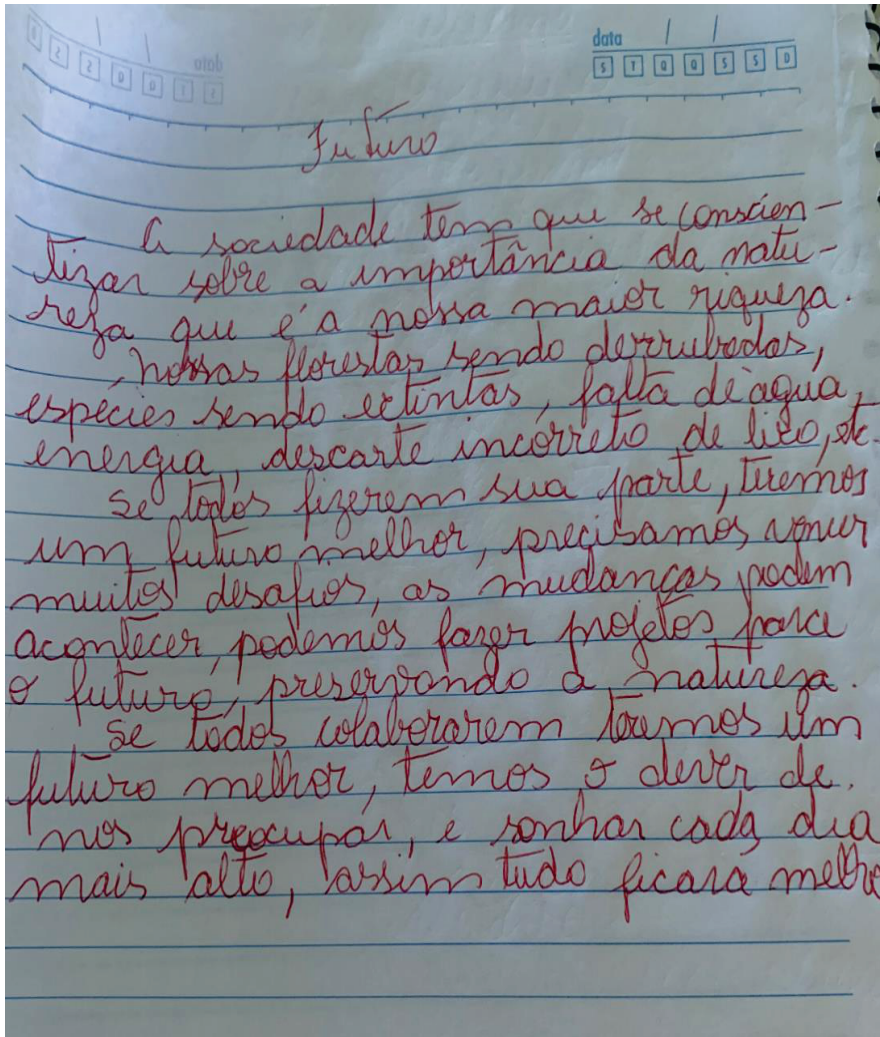 data / /
S T Q Q S S D
Futuro
A sociedade tem que se conscien-
tizar sobre a importância da natu-
reza que é a nossa maior riqueza.
Nossas florestas sendo derrubadas,
espécies sendo extintas, falta de água,
energia, descarte incorreto de lixo, etc.
Se todos fizerem sua parte, teremos
um futuro melhor, precisamos vencer
muitos desafios, as mudanças podem
acontecer, podemos fazer projetos para
o futuro, preservando a natureza.
Se todos colaborarem teremos um
futuro melhor, temos o dever de
nos preocupar, e sonhar cada dia
mais alto, assim tudo ficará melho